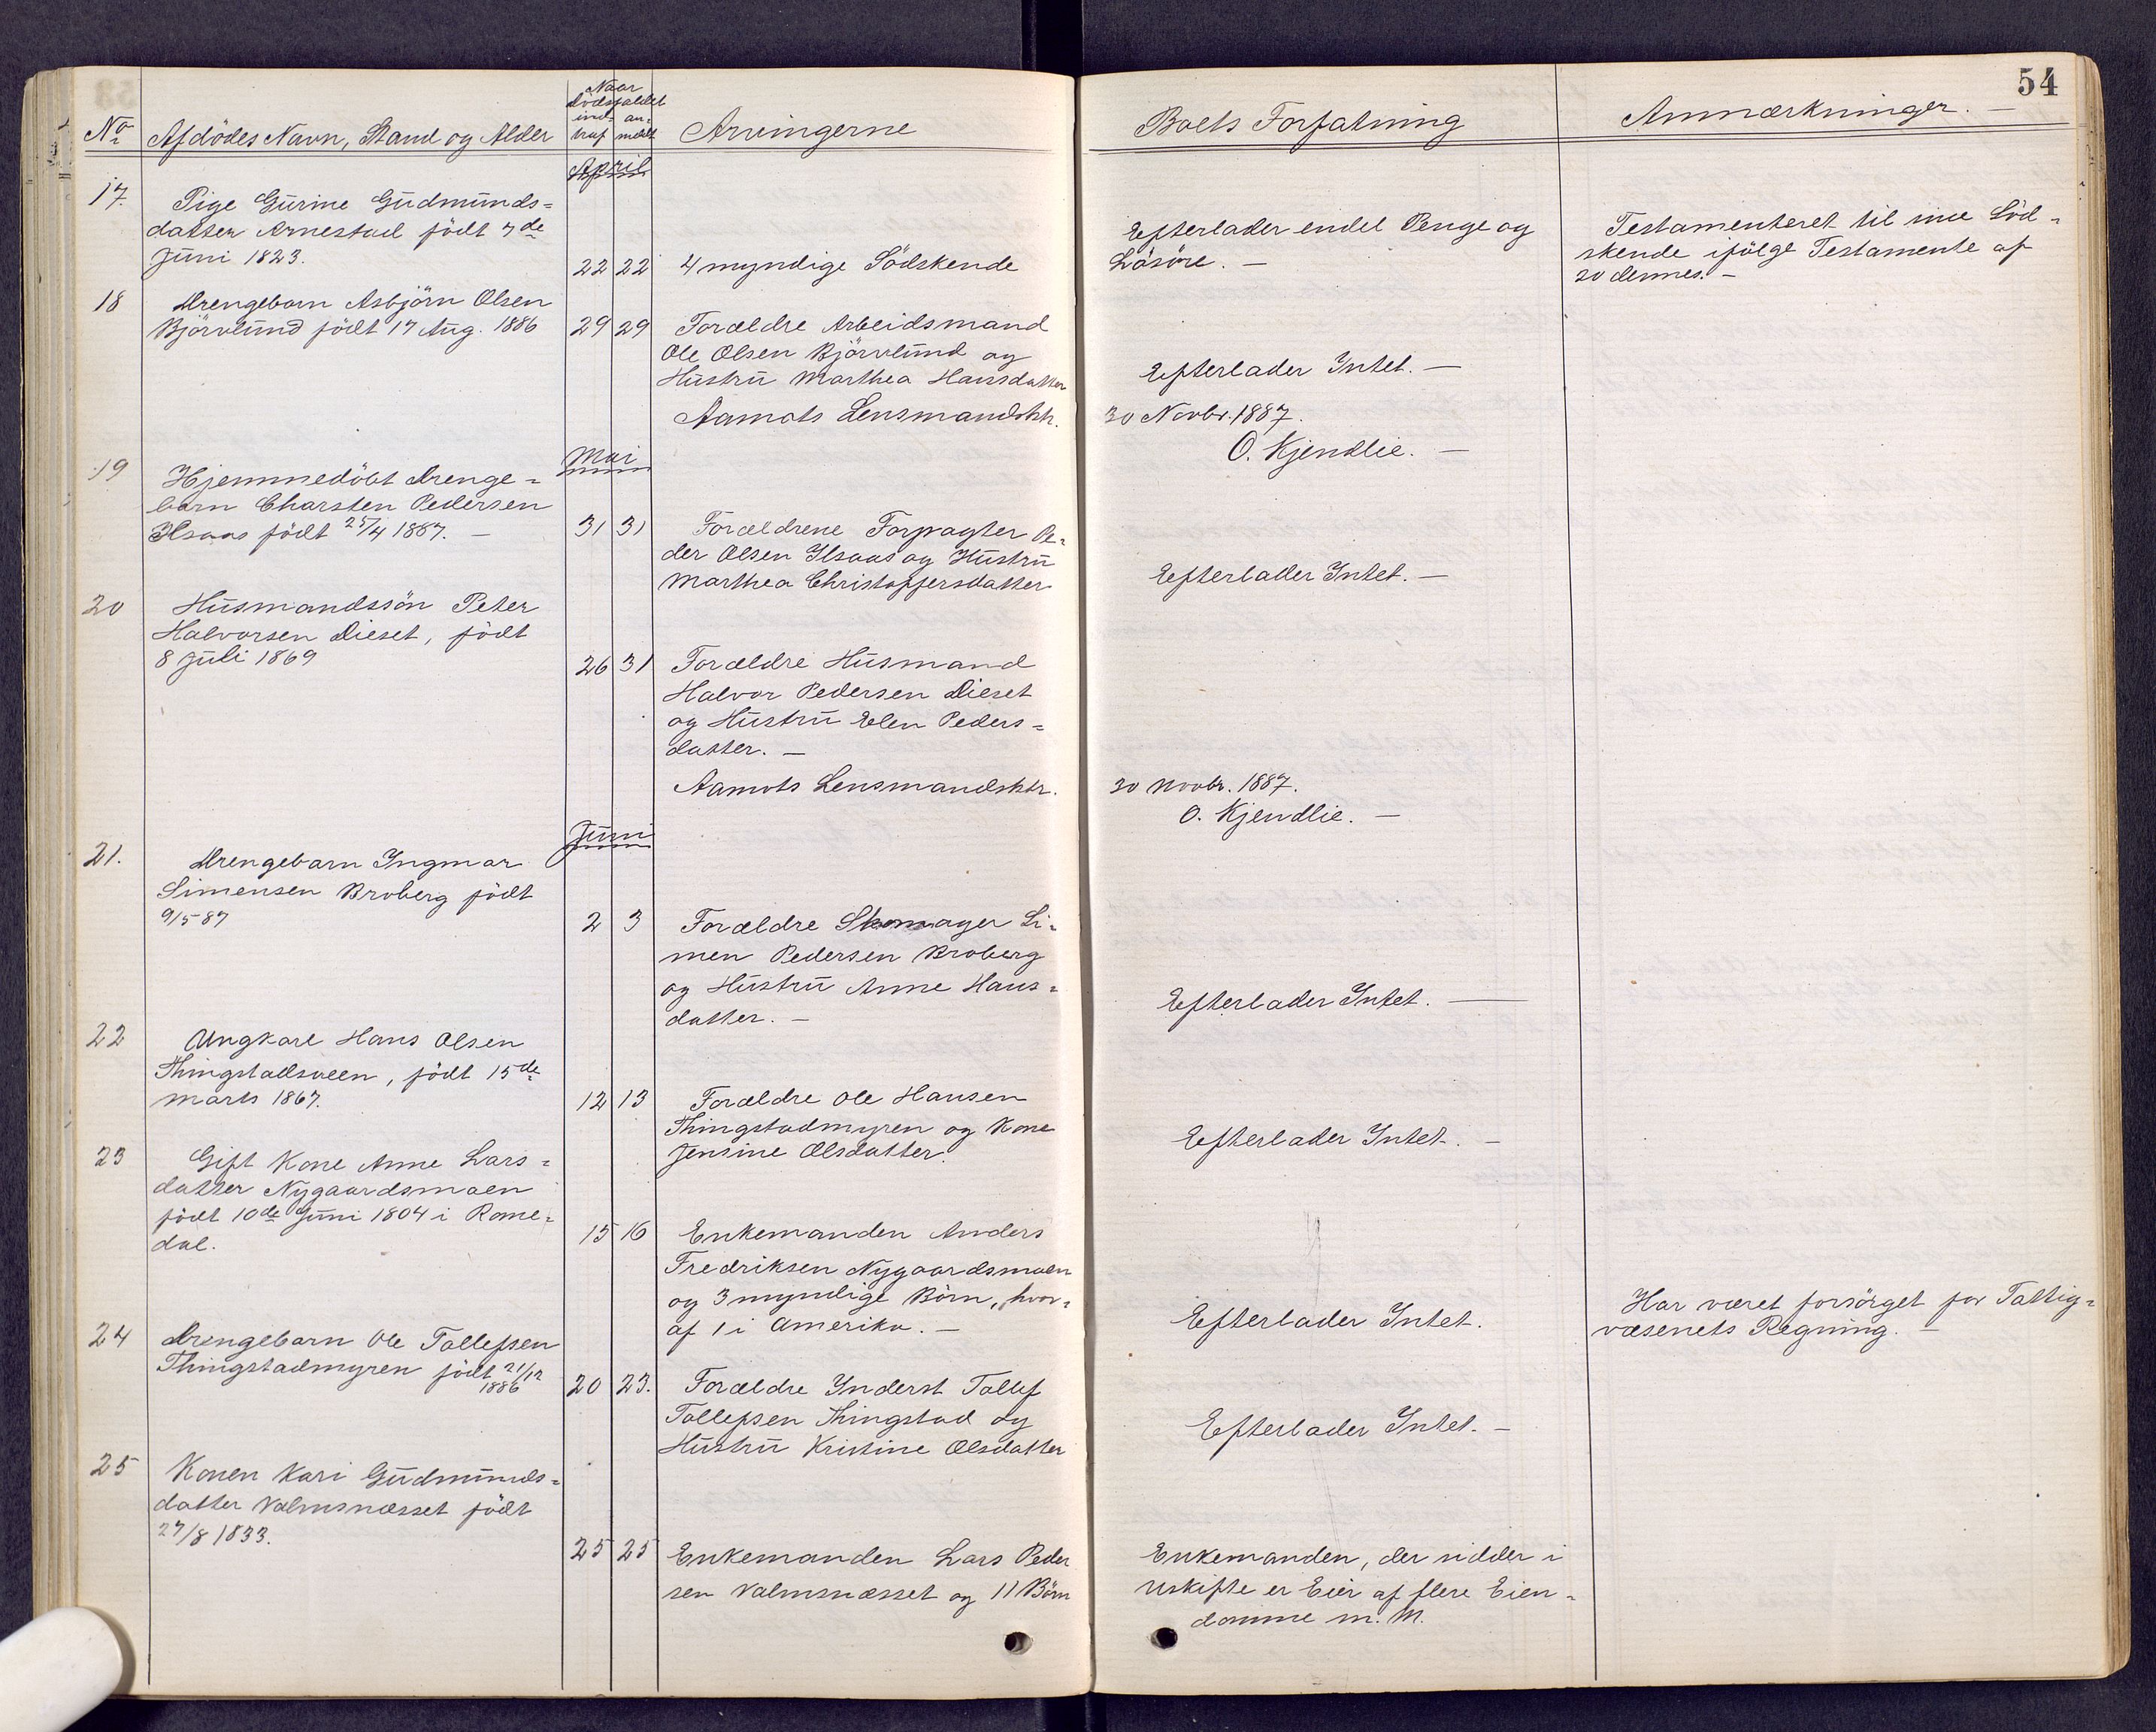 54
Naar
dödsfaldet
ind- an-
traf meldt
No Afdödes Navn, Stand og Alder
Arvingerne
Boets Forfatning
Anmærkninger. —
April
17. Pige Gurine Gudmunds=
datter Arnestad födt 7de
Juni 1823.
22 22 4 myndige Södskende
Efterlader endel Penge og
Lösöre. —
Testamenteret til sine Söd-
skende ifölge Testamente af
20 dennes. —
18 Drengebarn Asbjörn Olsen
Björnlund födt 17 Aug. 1886
29 29 Forældre Arbeidsmand
Ole Olsen Björnlund og
Hustru Marthea Hansdatter
Efterlader Intet. —
Aamots Lensmandsktr. 30 Novbr. 1887.
O. Kjendlie. —
Mai
19 Hjemmedöbt Drenge=
barn Charsten Pedersen
Ilsaas födt 25/4 1887. —
31 31 Forældrene Forpagter Pe-
der Olsen Ilsaas og Hustru
Marthea Christoffersdatter
Efterlader Intet. —
20 Husmandssön Peter
Halvorsen Dieset, födt
8 Juli 1869
26 31 Forældre Husmand
Halvor Pedersen Dieset
og Hustru Elen Peders=
datter. —
Aamots Lensmandsktr. 30 Novbr. 1887.
O. Kjendlie. —
Juni
21. Drengebarn Ingmar
Simensen Broberg födt
9/5 87
2 3 Forældre Skomager Si-
men Pedersen Broberg
og Hustru Anne Hans=
datter. —
Efterlader Intet. —
22 Ungkarl Hans Olsen
Thingstadsveen, födt 15de
Marts 1867.
12 13 Forældre Ole Hansen
Thingstadmyren og Kone
Jensine Olsdatter.
Efterlader Intet. —
23 Gift Kone Anne Lars=
datter Nygaardsmoen
födt 10de Juni 1804 i Rome=
dal.
15 16 Enkemanden Anders
Fredriksen Nygaardsmoen
og 3 myndige Börn, hvor-
af 1 i Amerika. —
Efterlader Intet.
Har været forsörget for Fattig=
væsenets Regning. —
24 Drengebarn Ole Tollefsen
Thingstadmyren födt 21/12
1886
20 23. Forældre Inderst Tollef
Tollefsen Thingstad og
Hustru Kristine Olsdatter
Efterlader Intet. —
25 Konen Kari Gudmunds=
datter Valmsnæsset födt
27/8 1833.
25 25 Enkemanden Lars Peder
sen Valmsnæsset og 11 Börn
Enkemanden, der sidder i
Uskifte er Eier af flere Eien-
domme m. M.